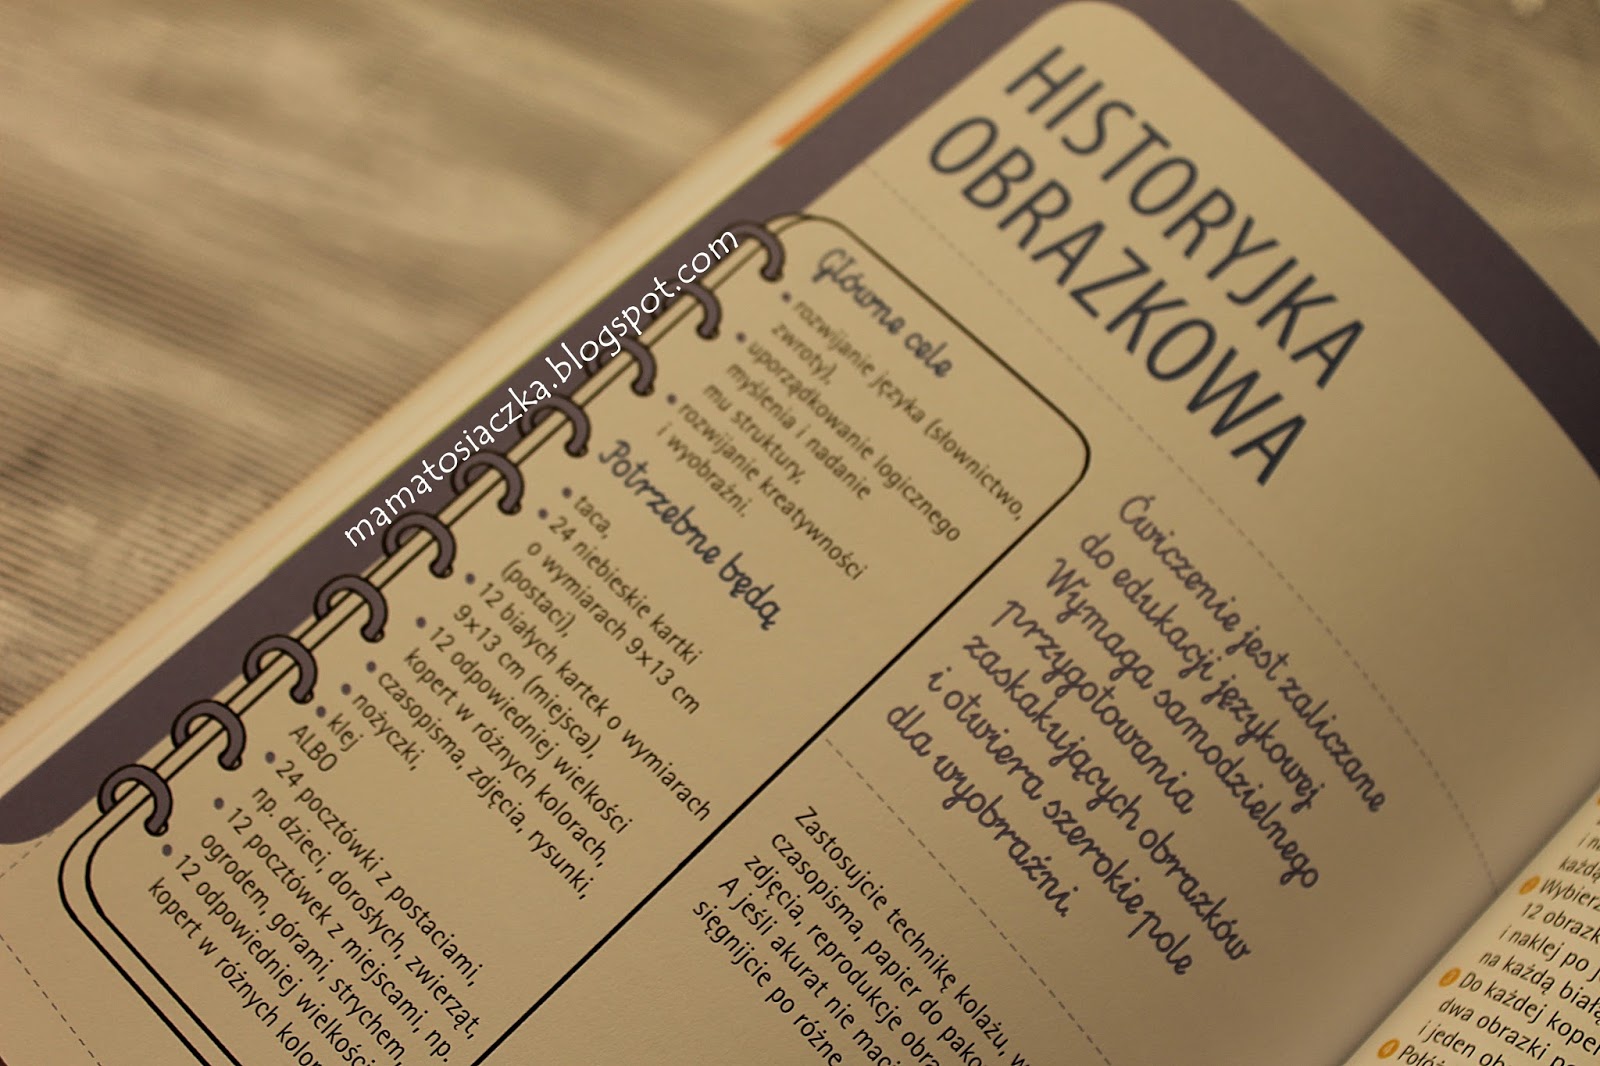 HISTORYJKA
OBRAZKOWA
Ćwiczenie jest zaliczane
do edukacji językowej.
Wymaga samodzielnego
przygotowania
zaskakujących obrazków
i otwiera szerokie pole
dla wyobraźni.
Główne cele
• rozwijanie języka (słownictwo,
zwroty),
• uporządkowanie logicznego
myślenia i nadanie
mu struktury,
• rozwijanie kreatywności
i wyobraźni.
Potrzebne będą
• taca,
• 24 niebieskie kartki
o wymiarach 9×13 cm
(postaci),
• 12 białych kartek o wymiarach
9×13 cm (miejsca),
• 12 odpowiedniej wielkości
kopert w różnych kolorach,
• czasopisma, zdjęcia, rysunki,
• nożyczki,
• klej
ALBO
• 24 pocztówki z postaciami,
np. dzieci, dorosłych, zwierząt,
• 12 pocztówek z miejscami, np.
ogrodem, górami, strychem,
• 12 odpowiedniej wielkości
kopert w różnych
Zastosujcie technikę kolażu,
czasopisma, papier do
zdjęcia, reprodukcje
A jeśli akurat nie
sięgnijcie po różne
i
każdą
2 Wybierz
12
i naklej po
na każdą
3 Do każdej
dwa obrazki
i jeden
4
mamatosiaczka.blogspot.com